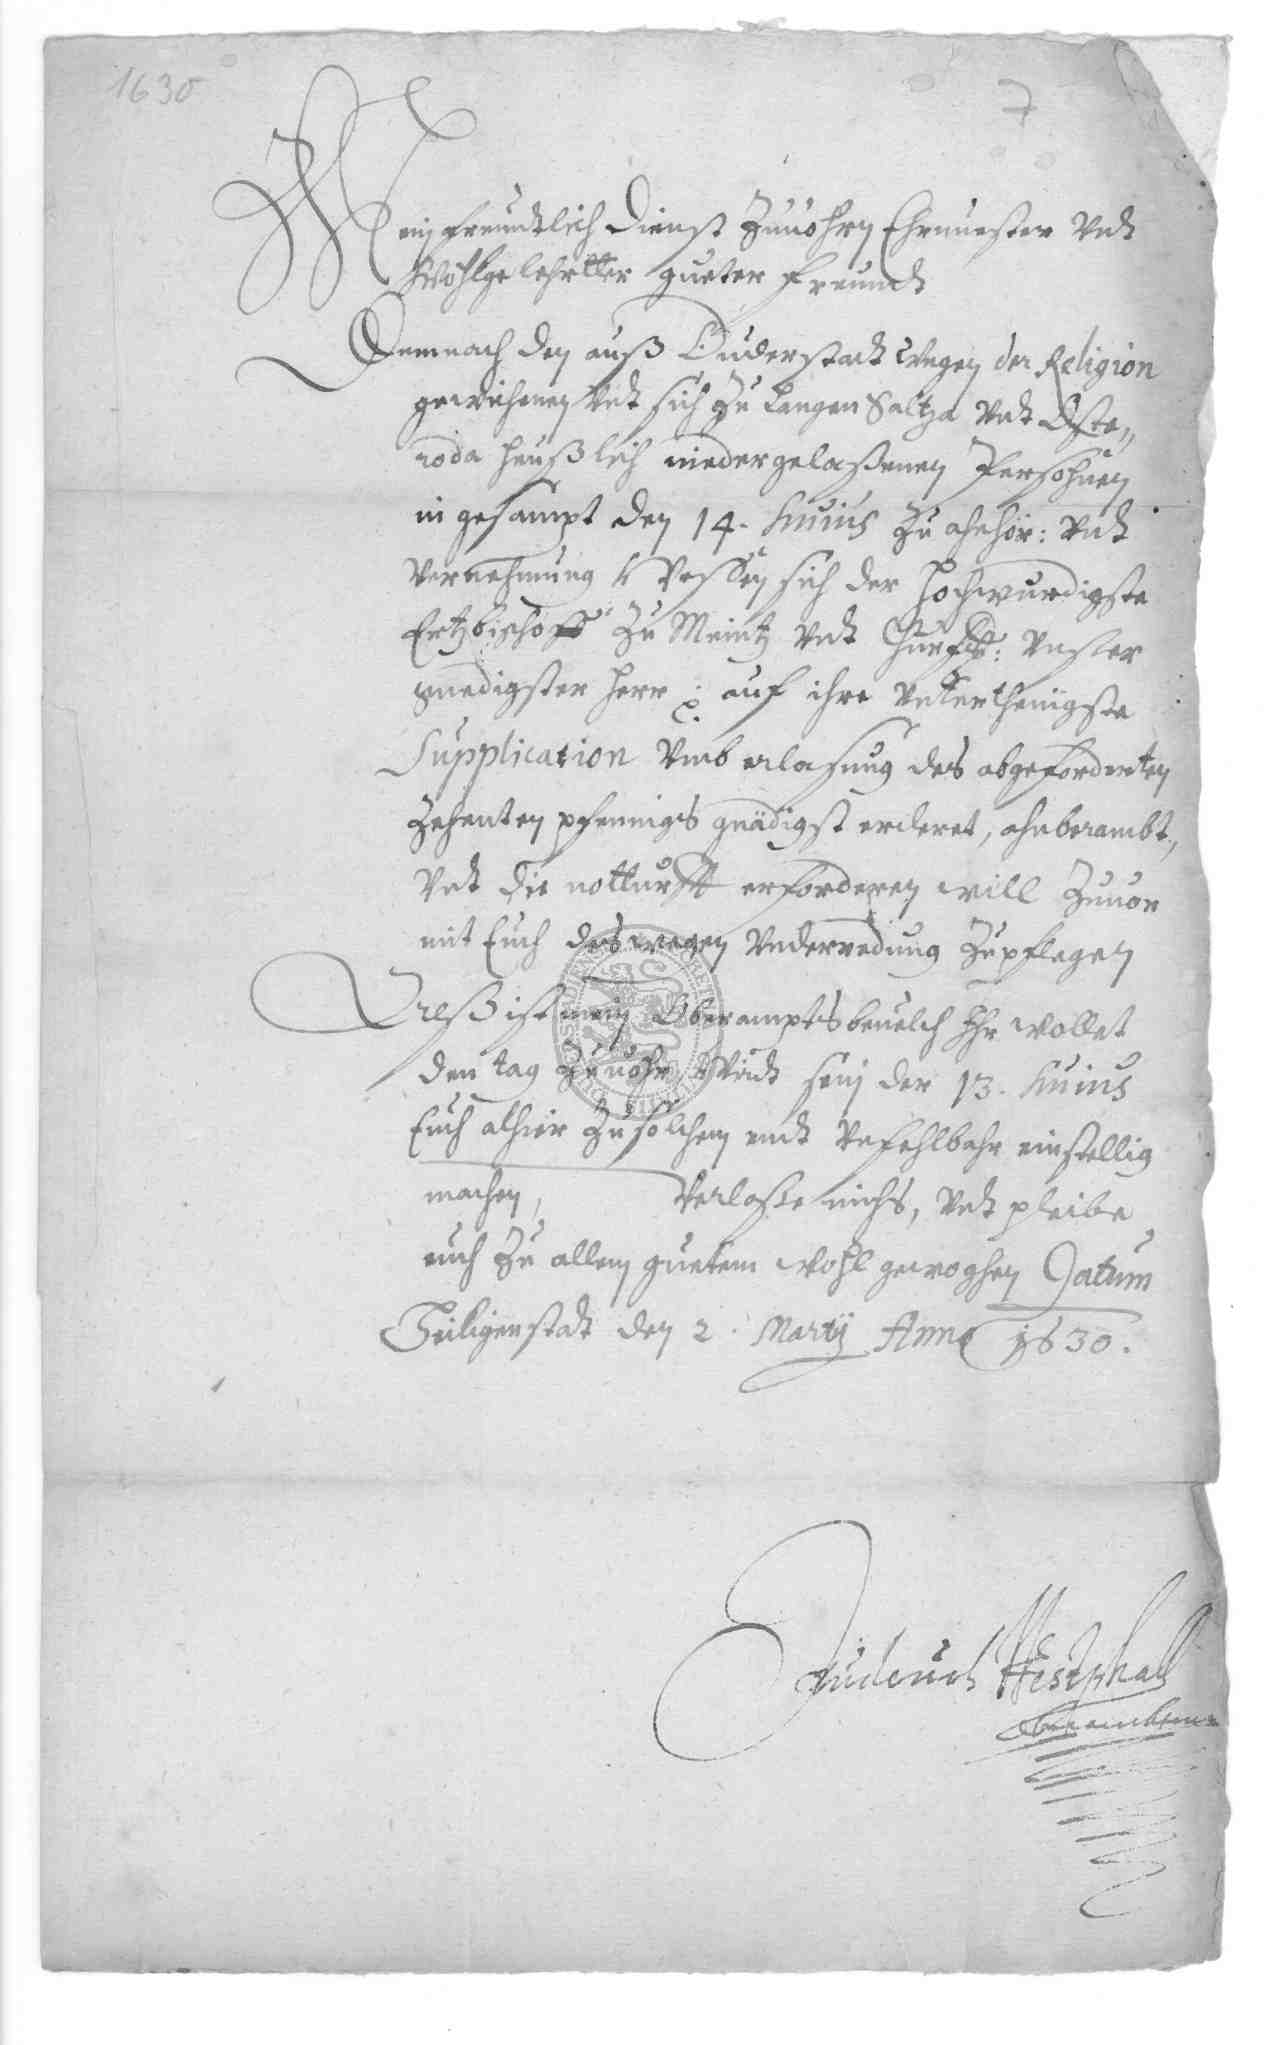 1630
7
Mein freundtlich Dienst Zuuohrn Ehrnuester Vndt
Wohlgelehrtter gueter Freundt
Demnach den auß Duderstadt Wegen der Religion
gewichenen Vndt sich Zu Langen Saltza Vndt Oste„
roda heußlich niedergelaßenen Persohnen
in gesampt den 14. huius Zu ahnhör: Vndt
Vernehmung Weßen sich der Hochwurdigste
Ertzbischoff Zu Meintz Vndt Churfst: Vnser
gnedigster Herr p. auf ihre Vnterthenigste
Supplication Vmb erlasung des abgeforderten
Zehenten pfennigs gnädigst ercleret, ahnberambt,
Vndt die notturfft erforderen will Zuuor
mit Euch deswegen Vnderredung Zupflegen
Dieß ist mein Oberampts beuelch Ihr wollet
den tag Zuuohr Wirdt sein der 13. huius
Euch alhier Zu solchem endt Vnfehlbahr einstellig
machen, Verlaße michs, Vndt pleibe
euch Zu allem guetem wohl gewoghen Datum
Heiligenstadt den 2. Martij Anno 1630.
Westphall
Oberambtman